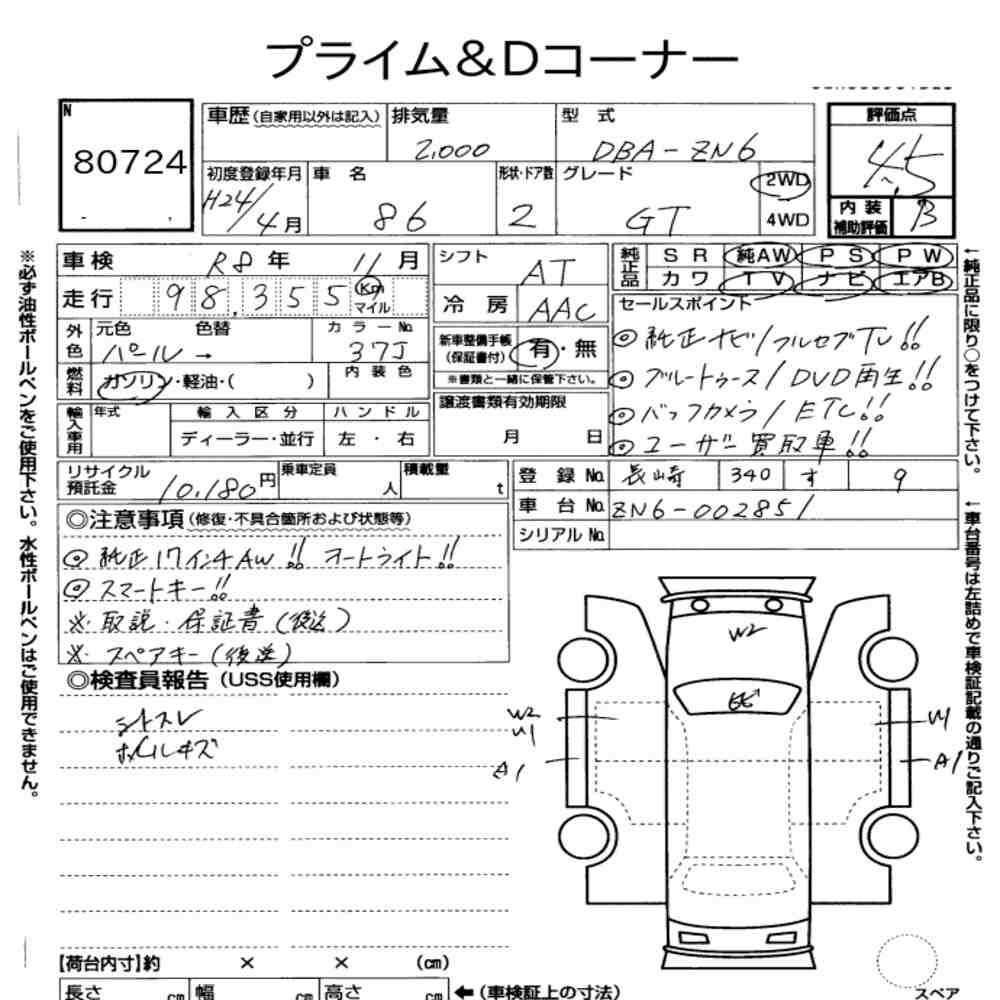 プライム&Dコーナー
N
80724
車歴(自家用以外は記入)
排気量
2,000
型 式
DBA-ZN6
評価点
4.5
初度登録年月
H24/4月
車 名
86
形状・ドア数
2
グレード
GT
2WD
4WD
内装補助評価
B
車検 R8年 11月
シフト
AT
純正品
SR 純AW PS PW
カワ TV ナビ エアB
走行 98,355 Km マイル
冷房
AAC
セールスポイント
◎純正ナビ/フルセグTV!!
◎ブルートゥース/DVD再生!!
◎バックカメラ/ETC!!
◎ユーザー買取車!!
外色
元色 色替
パール→
カラーNo.
37J
新車整備手帳(保証書付)
有・無
※書類と一緒に保管下さい。
燃料
ガソリン・軽油・( )
内装色
譲渡書類有効期限
月 日
輸入車用
年式
輸入区分
ディーラー・並行
ハンドル
左・右
リサイクル預託金
10,180円
乗車定員
人
積載量
t
登録No. 長崎 340 す 9
車台No. ZN6-002851
シリアルNo.
◎注意事項(修復・不具合箇所および状態等)
◎純正17インチAW!! オートライト!!
◎スマートキー!!
※取説・保証書(後送)
※スペアキー(後送)
◎検査員報告(USS使用欄)
シートスレ
ホイールキズ
W2
W2
W1
A1
W1
A1
【荷台内寸】約 × × (cm)
長さ cm 幅 cm 高さ cm
←(車検証上の寸法)
スペア
※必ず油性ボールペンをご使用下さい。水性ボールペンはご使用できません。
←純正品に限り○をつけて下さい。
←車台番号は左詰めで車検証記載の通りご記入下さい。